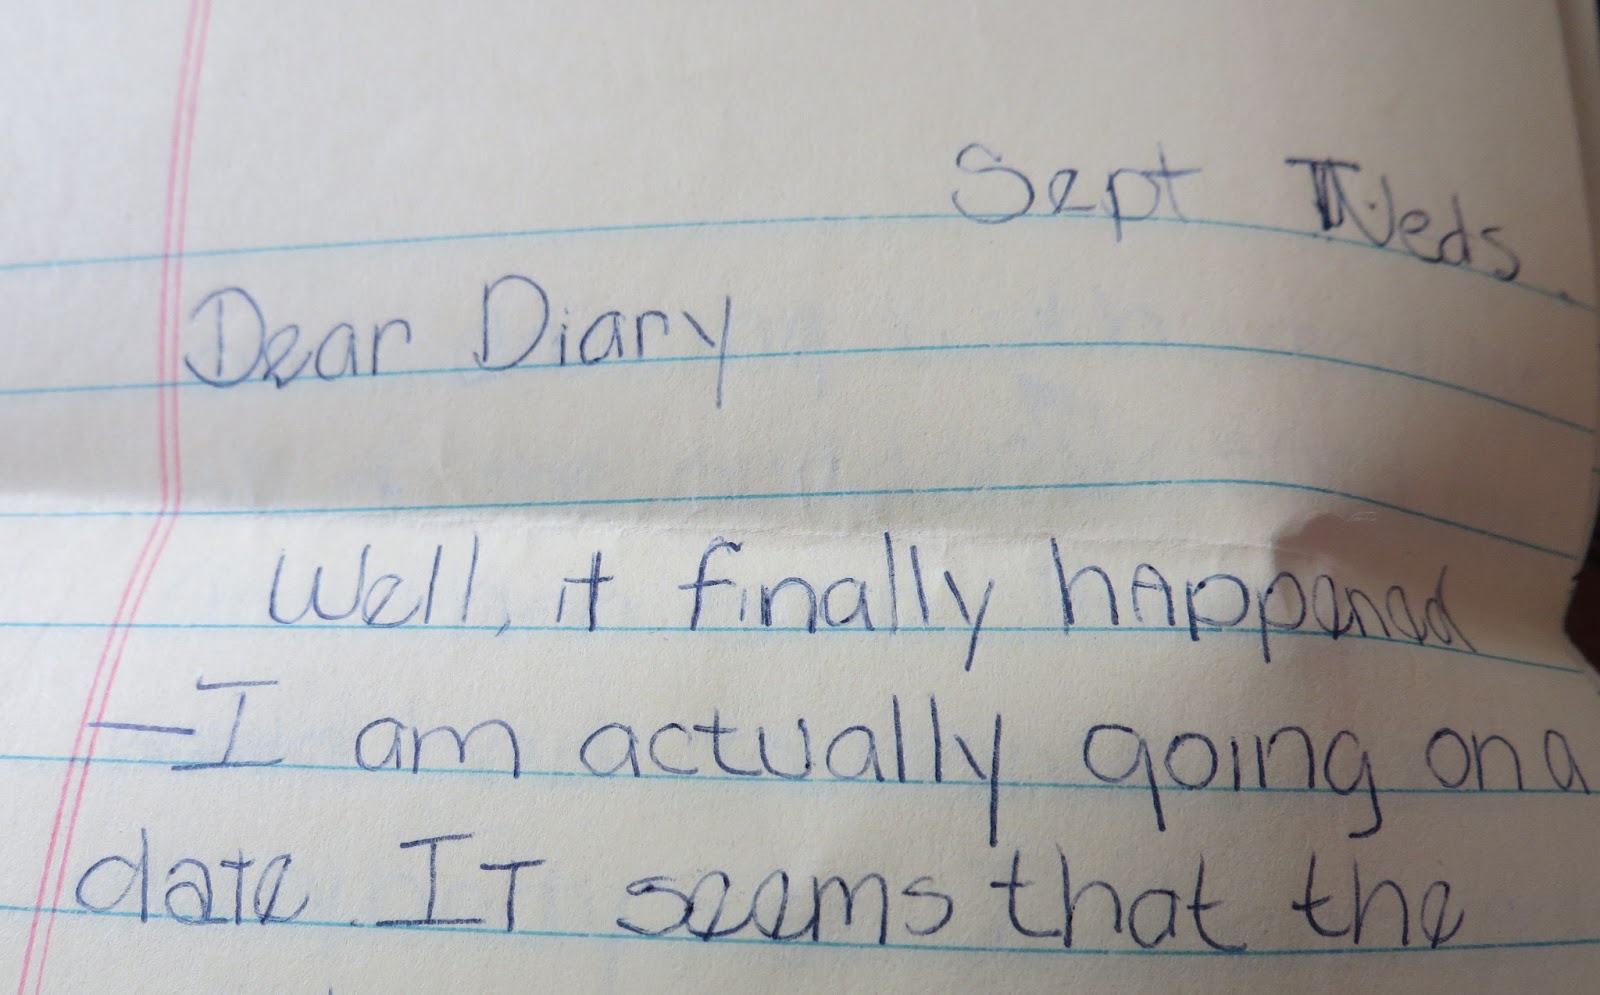 Sept Weds.
Dear Diary
Well, it finally hAppened
—I am actually going on a
date. IT seems that the